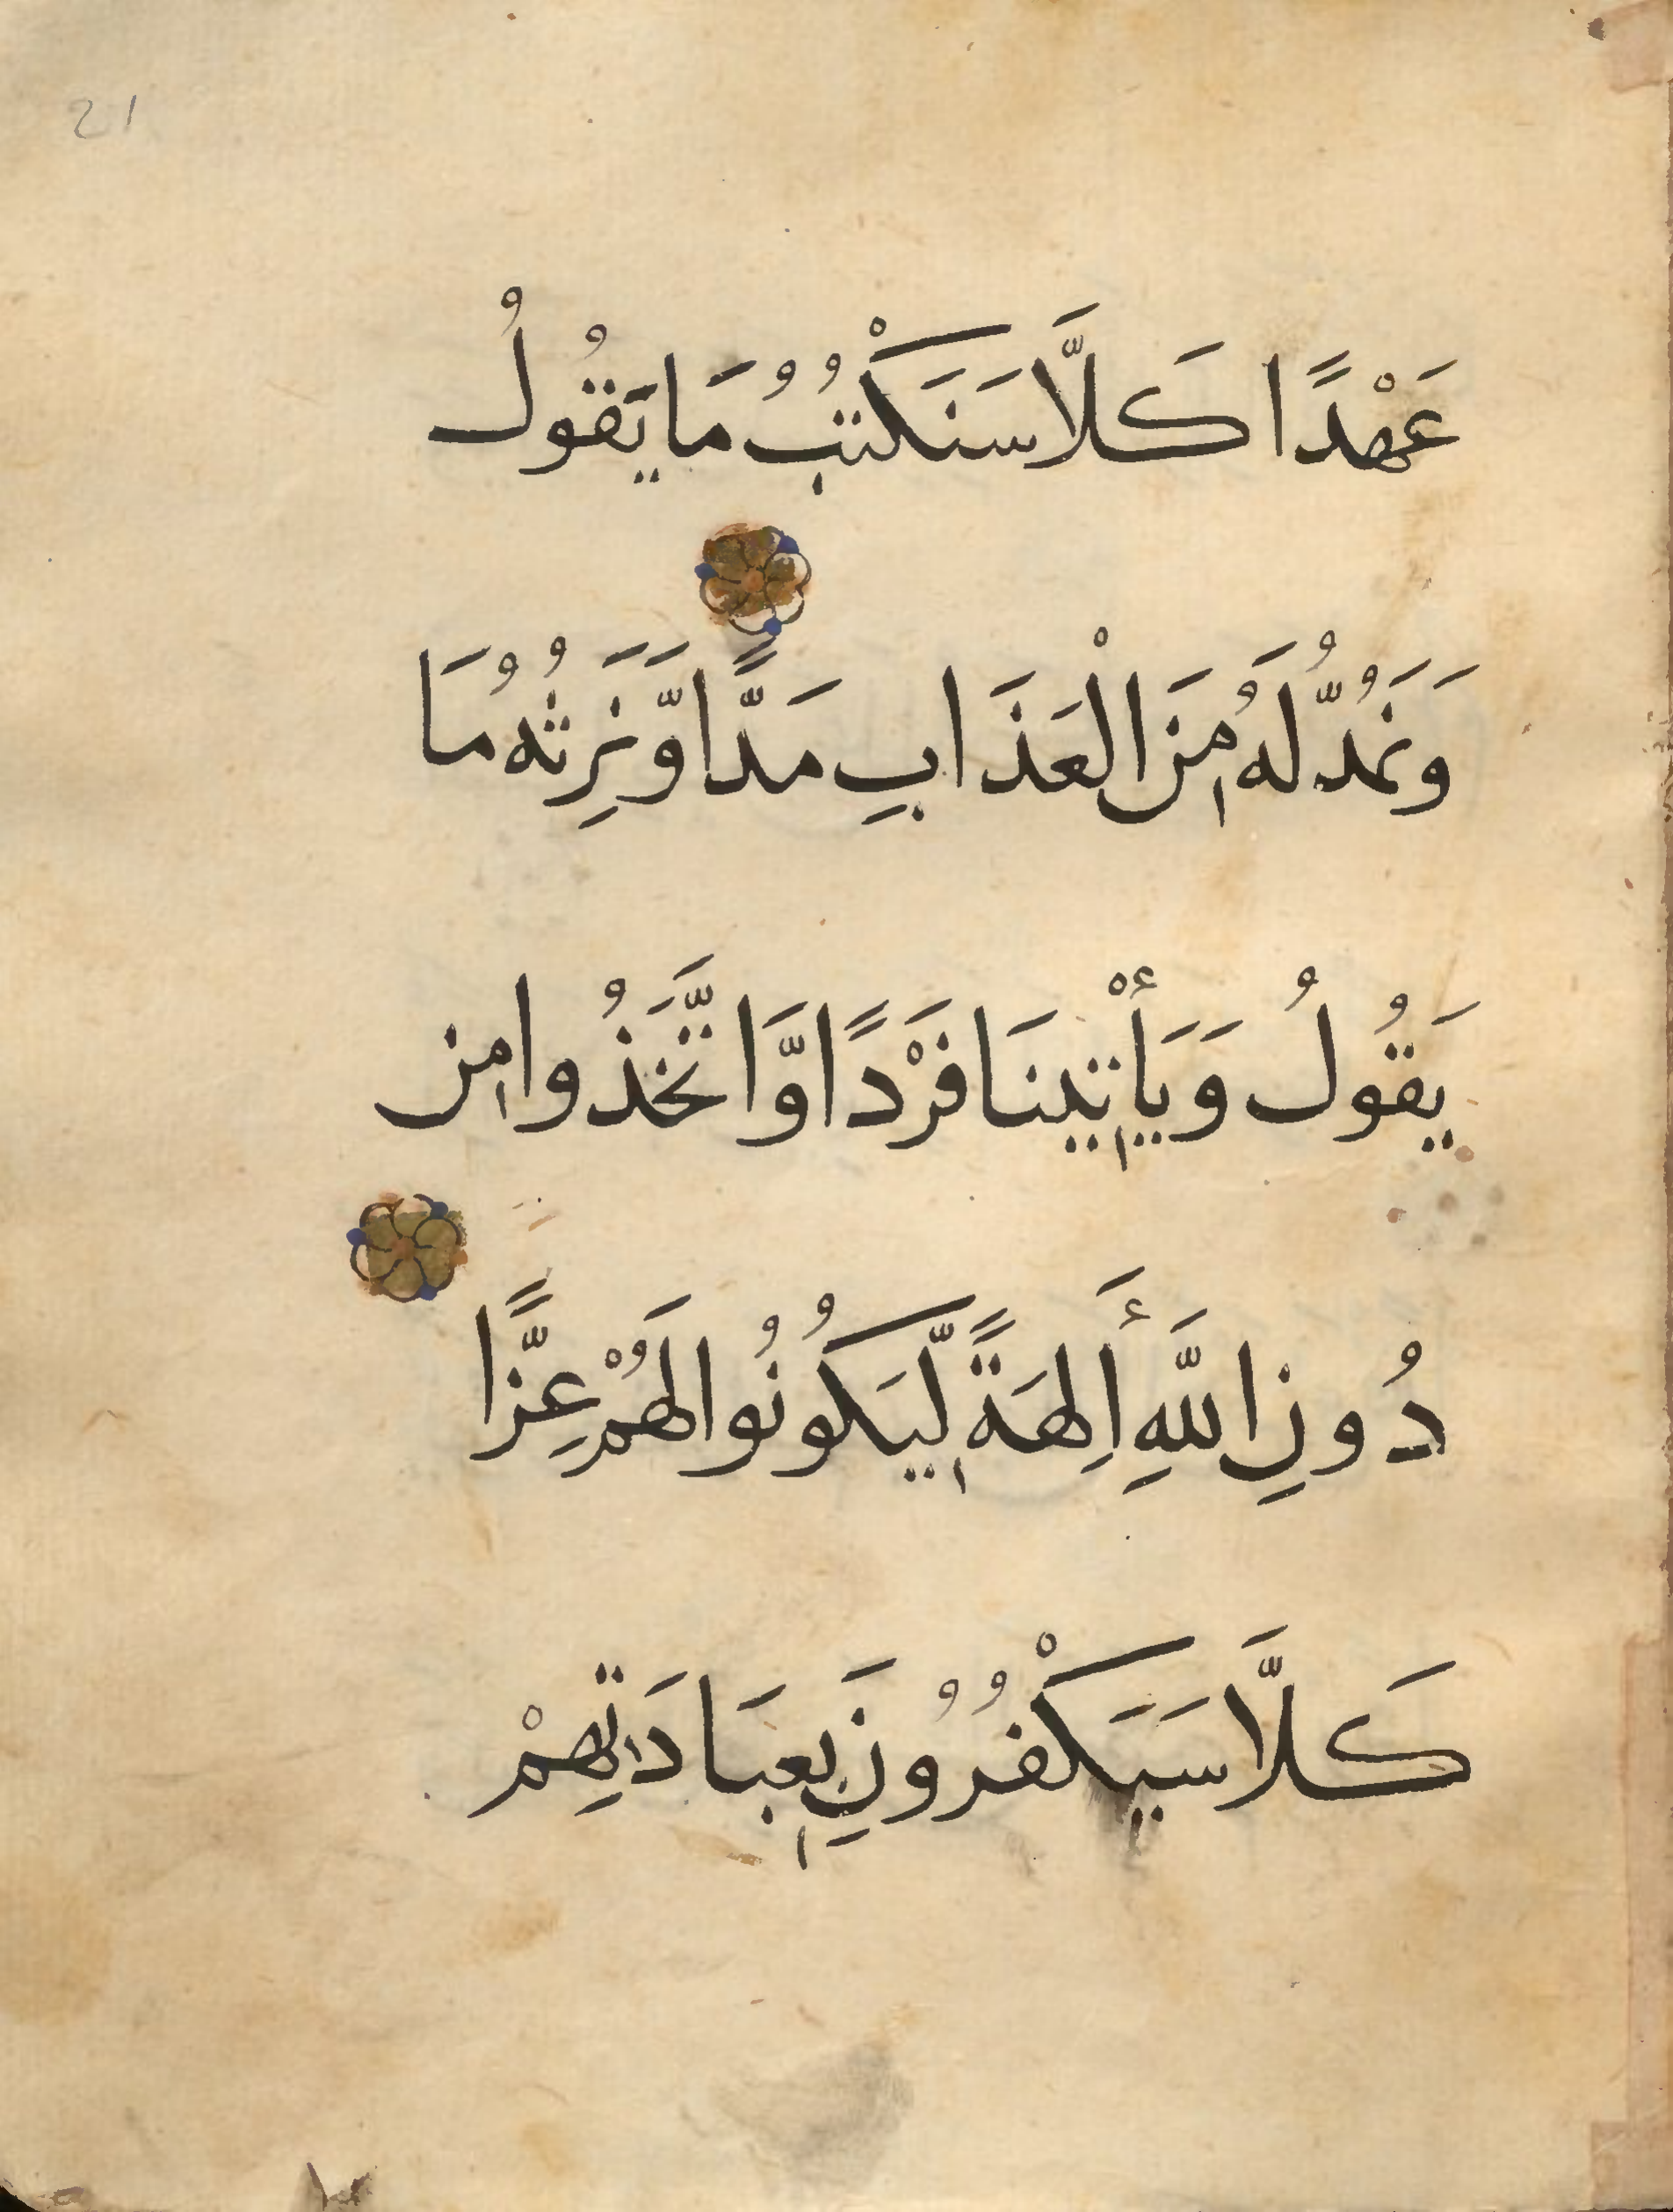 21
عَهْدًا كَلَّا سَنَكْتُبُ مَا يَقُولُ
وَنَمُدُّ لَهُ مِنَ الْعَذَابِ مَدًّا وَّنَرِثُهُ مَا
يَقُولُ وَيَأْتِينَا فَرْدًا وَّاتَّخَذُوا مِن
دُونِ اللَّهِ أَلِهَةً لِّيَكُونُوا لَهُمْ عِزًّا
كَلَّا سَيَكْفُرُونَ بِعِبَادَتِهِمْ